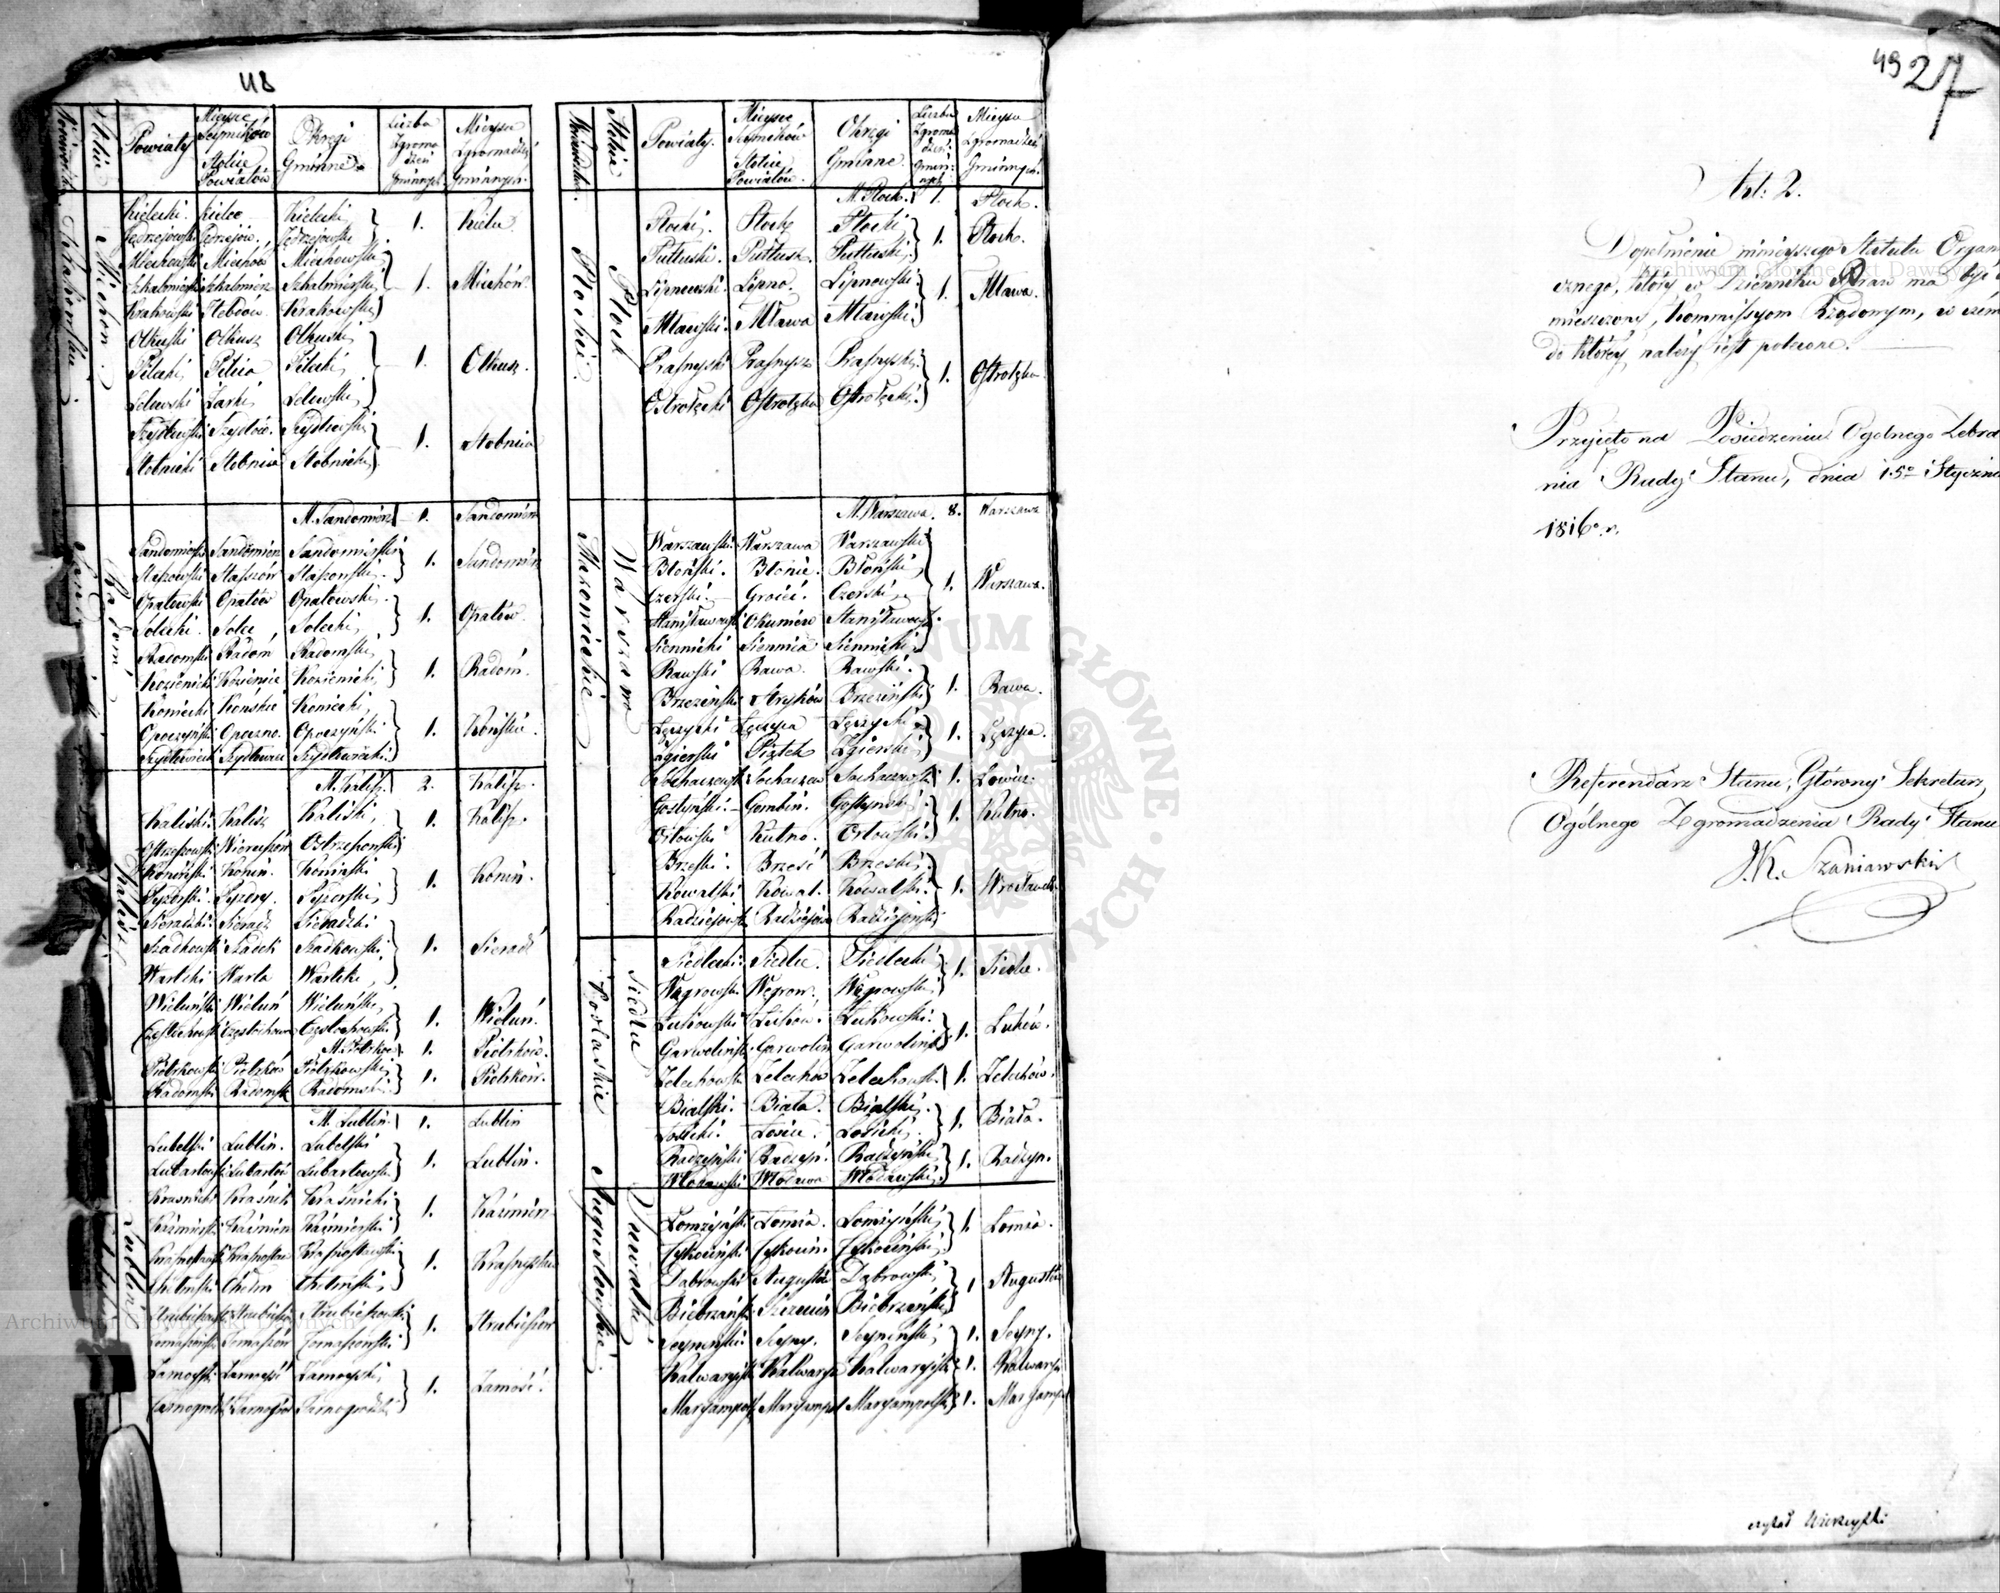 48
Powiaty
Mieysce Seymików Stolice Powiatów
Okręgi Gminne
Liczba Zgromadzeń Gminnych
Mieysca Zgromadzeń Gminnych
Kielecki. Kielce Kielecki, 1. Kielce
Jędrzejowski Jędrzejów. Jędrzejowski
Miechowski Miechów Miechowski 1. Miechów
Szkalmierski Szkalmierz Szkalmierski
Krakowski Hebdów Krakowski
Olkuski Olkusz Olkuski, 1. Olkusz.
Pilecki, Pilica Pilecki,
Lelowski Żarki Lelowski,
Szydłowski Szydłów. Szydłowski 1. Stobnica
Stobnicki Stobnica Stobnicki
M. Sandomierz 1. Sandomierz
Sandomierski Sandomierz Sandomierski 1. Sandomierz
Staszowski Staszów Staszowski.
Opatowski Opatów Opatowski. 1. Opatów.
Solecki. Solec, Solecki,
Radomski Radom Radomski, 1. Radom.
Kozienicki Kozienice Kozienicki
Konecki Końskie Konecki, 1. Końskie.
Opoczyński Opoczno. Opoczyński
Szydłowiecki Szydłowiec Szydłowiecki.
M. Kalisz. 2. Kalisz.
Kaliski. Kalisz Kaliski, 1. Kalisz.
Ostrzeszowski Wieruszów Ostrzeszowski
Koniński Konin. Koniński 1. Konin.
Pyzdrski. Pyzdry. Pyzdrski,
Sieradzki: Sieradz Sieradzki 1. Sieradź
Szadkowski Szadek Szadkowski,
Wartski Warta Wartski,
Wieluński Wieluń Wieluński, 1. Wieluń.
Częstochowski Częstochowa Częstochowski
M. Piotrków. 1. Piotrków.
Piotrkowski Piotrków Piotrkowski 1. Piotrków.
Radomski. Radomsk Radomski.
M. Lublin. 1. Lublin
Lubelski Lublin. Lubelski 1. Lublin.
Lubartowski Lubartów Lubartowski
Kraśnicki Kraśnik Kraśnicki 1. Kaźmierz.
Kaźmierski Kaźmierz Kaźmierski
Krasnostawski Krasnystaw Krasnostawski 1. Krasnystaw
Chełmski Chełm Chełmski,
Hrubieszowski Hrubieszów Hrubieszowski 1. Hrubieszów
Tomaszowski Tomaszów Tomaszowski.
Zamoyski Zamość Zamoyski, 1. Zamość.
Tarnogrodzki Tarnogród Tarnogrodzki
Powiaty.
Mieysce Seymików Stolice Powiatów.
Okręgi Gminne.
Liczba Zgromadzeń Gminnych
Mieysca Zgromadzeń Gminnych.
Płockie. Płock
M. Płock. 1. Płock.
Płocki, Płock Płocki, 1. Płock.
Pułtuski. Pułtusk. Pułtuski,
Lipnowski. Lipno. Lipnowski. 1. Mława.
Mławski. Mława Mławski,
Prasnyski Prasnysz Prasnyski, 1. Ostrołęka.
Ostrołęcki Ostrołęka Ostrołęcki.
Mazowieckie Warszawa
M. Warszawa. 8. Warszawa
Warszawski. Warszawa Warszawski 1. Warszawa.
Błoński. Błonie. Błoński,
Czerski. Groiec. Czerski,
Stanisławowski Okuniew Stanisławowski.
Siennicki Siennica Siennicki,
Rawski Rawa. Rawski. 1. Rawa.
Brzeziński Stryków Brzeziński
Łęczycki Łęczyca Łęczycki, 1. Łęczyca.
Zgierski Piątek Zgierski,
Sochaczewski Sochaczew Sochaczewski 1. Łowicz.
Gostyński. Gombin. Gostynski. 1. Kutno.
Orłowski Kutno. Orłowski.
Brzeski. Brześć Brzeski, 1. Włocławek.
Kowalski Kowal. Kowalski.
Radziejowski Radziejów Radziejowski
Podlaskie Siedlce
Siedlecki. Siedlce. Siedlecki, 1. Siedlce.
Węgrowski. Węgrow. Węgrowski,
Łukowski. Łuków. Łukowski. 1. Łuków.
Garwoliński. Garwolin Garwoliński
Żelechowski Żelechów Żelechowski. 1. Żelechów.
Bialski. Biała. Bialski, 1. Biała.
Łosicki. Łosice. Łosicki,
Radzyński Radzyń. Radzyński, 1. Radzyn.
Włodawski Włodawa Włodawski,
Augustowskie Suwałki
Łomżyński Łomża. Łomżyński, 1. Łomża.
Tykociński Tykocin. Tykociński,
Dąbrowski Augustów Dąbrowski, 1 Augustów
Biebrzański Szczucin Biebrzański,
Seyneński. Seyny. Seyneński, 1. Seyny.
Kalwaryjski Kalwarya Kalwaryjski 1. Kalwarya
Maryampolski Maryampol Maryampolski 1. Maryampol
49 27
Art: 2.
Dopełnienie ninieyszego Statutu Organi
cznego, który w Dzienniku Praw ma być u
mieszczony, Kommissyom Rządowym, w czém
do któréy należy iest polecone.
Przyięto na Posiedzeniu Ogolnego Zebra
nia Rady Stanu, dnia 15º Stycznia
1816º r.
Referendarz Stanu, Główny Sekretarz,
Ogólnego Zgromadzenia Rady Stanu
J. K. Szaniawski
czytał Wierzycki
Archiwum Główne Akt Dawnych
Archiwum Główne Akt Dawnych